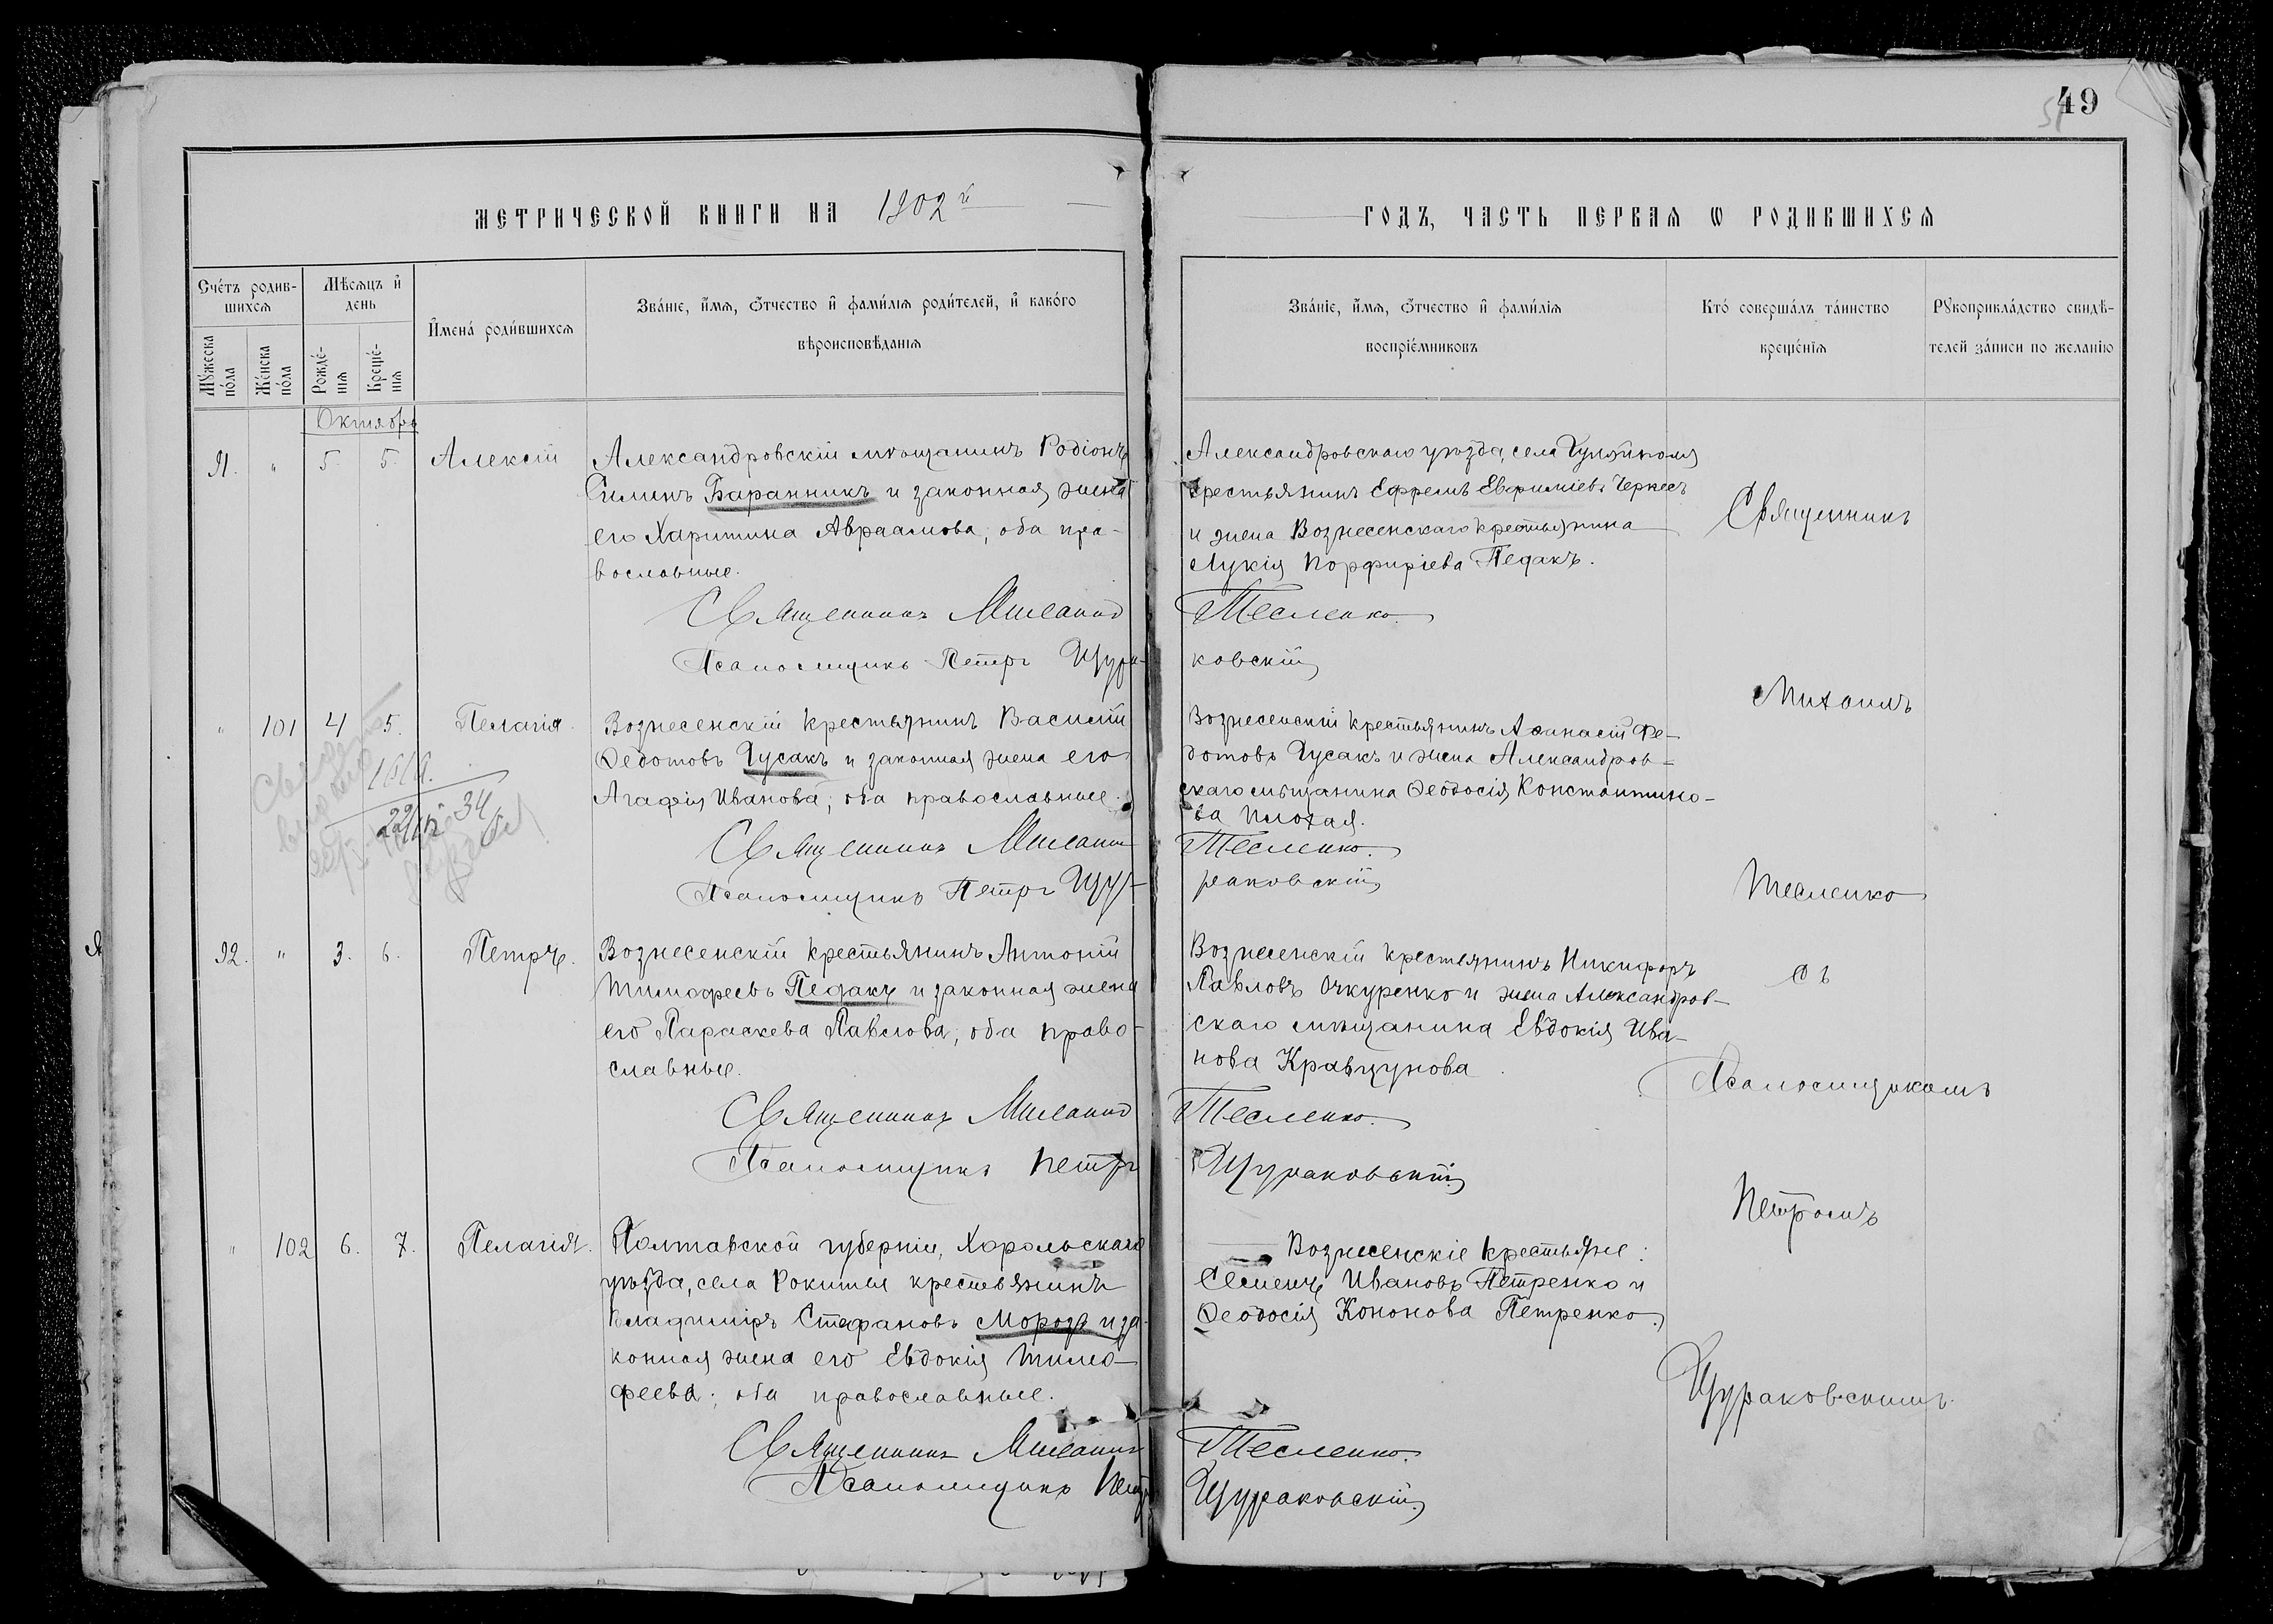 49
МЕТРИЧЕСКОЙ КНИГИ НА 1902й
ГОДЪ, ЧАСТЬ ПЕРВАЯ Ѡ РОДИВШИХСЯ
Счетъ родившихся
Мужеска пола
Женска пола
Мѣсяцъ и день
Рожденія
Крещенія
Имена родившихся
Званіе, имя, отчество и фамилія родителей, и какого
вѣроисповѣданія
Званіе, имя, отчество и фамилія
воспріемниковъ
Кто совершалъ таинство
крещенія
Рукоприкладство свидѣ-
телей записи по желанію
Октябрь
91. " 5. 5. Алексій
Александровскій мѣщанинъ Родіонъ
Симинъ Баранникъ и законная жена
его Харитина Авраамова, оба пра-
вославные.
Александровскаго уѣзда, села Гуляйполя
крестьянинъ Ефремъ Евфиміевъ Черкесъ
и жена Вознесенскаго крестьянина
Лукія Порфиріева Педакъ.
Священникъ Михаилъ Тесленко.
Псаломщикъ Петръ Щураковскій
" 101 4 5. Пелагія.
Вознесенскій крестьянинъ Василій
Ѳедотовъ Гусакъ и законная жена его
Агафія Иванова; оба православные.
Вознесенскій крестьянинъ Аѳанасій Фе-
дотовъ Гусакъ и жена Александров-
скаго мѣщанина Ѳеодосія Константино-
ва Плохая.
Священникъ Михаилъ Тесленко.
Псаломщикъ Петръ Щураковскій
22 34
92. " 3. 6. Петръ.
Вознесенскій крестьянинъ Антоній
Тимофеевъ Педакъ и законная жена
его Параскева Павлова, оба право-
славные.
Вознесенскій крестьянинъ Никифоръ
Павловъ Очкуренко и жена Александров-
скаго мѣщанина Евдокія Ива-
нова Кравцунова.
Священникъ Михаилъ Тесленко.
Псаломщикъ Петръ Щураковскій
" 102 6. 7. Пелагія.
Полтавской губерніи, Хорольскаго
уѣзда, села Рокитья крестьянинъ
Владиміръ Стефановъ Морозъ и за-
конная жена его Евдокія Тимо-
феева; оба православные.
Вознесенскіе крестьяне:
Семенъ Ивановъ Петренко и
Ѳеодосія Кононова Петренко.
Священникъ Михаилъ Тесленко.
Псаломщикъ Петръ Щураковскій
Священникъ
Михаилъ
Тесленко
съ
Псаломщикомъ
Петромъ
Щураковскимъ.